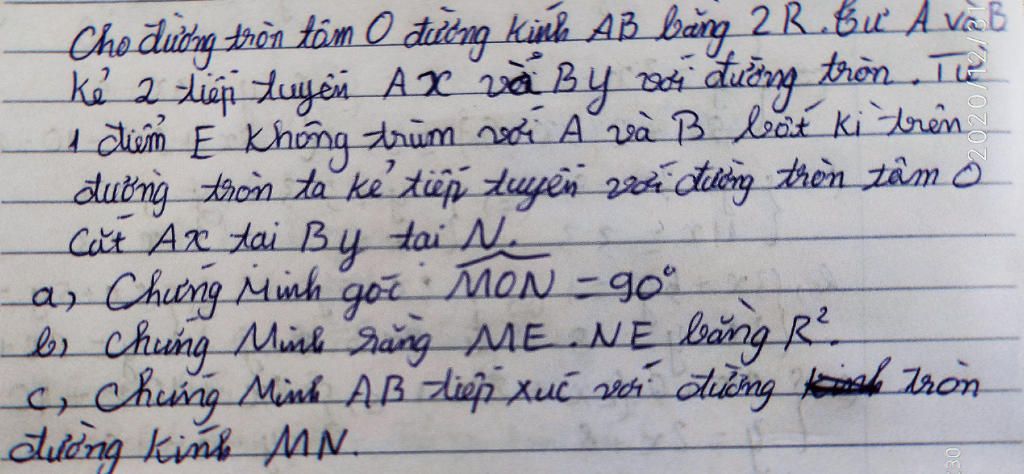 Cho đường tròn tâm O đường kính AB bằng 2R. Từ A và B
kẻ 2 tiếp tuyến Ax và By với đường tròn. Từ
1 điểm E không trùm với A và B bất kì trên
đường tròn ta kẻ tiếp tuyến với đường tròn tâm O
Cắt Ax tại By tại N.
a, Chứng Minh góc MON = 90°
b, Chứng Minh rằng ME . NE bằng R².
c, Chứng Minh AB tiếp xúc với đường tròn
đường kính MN.
2020/12/31
30